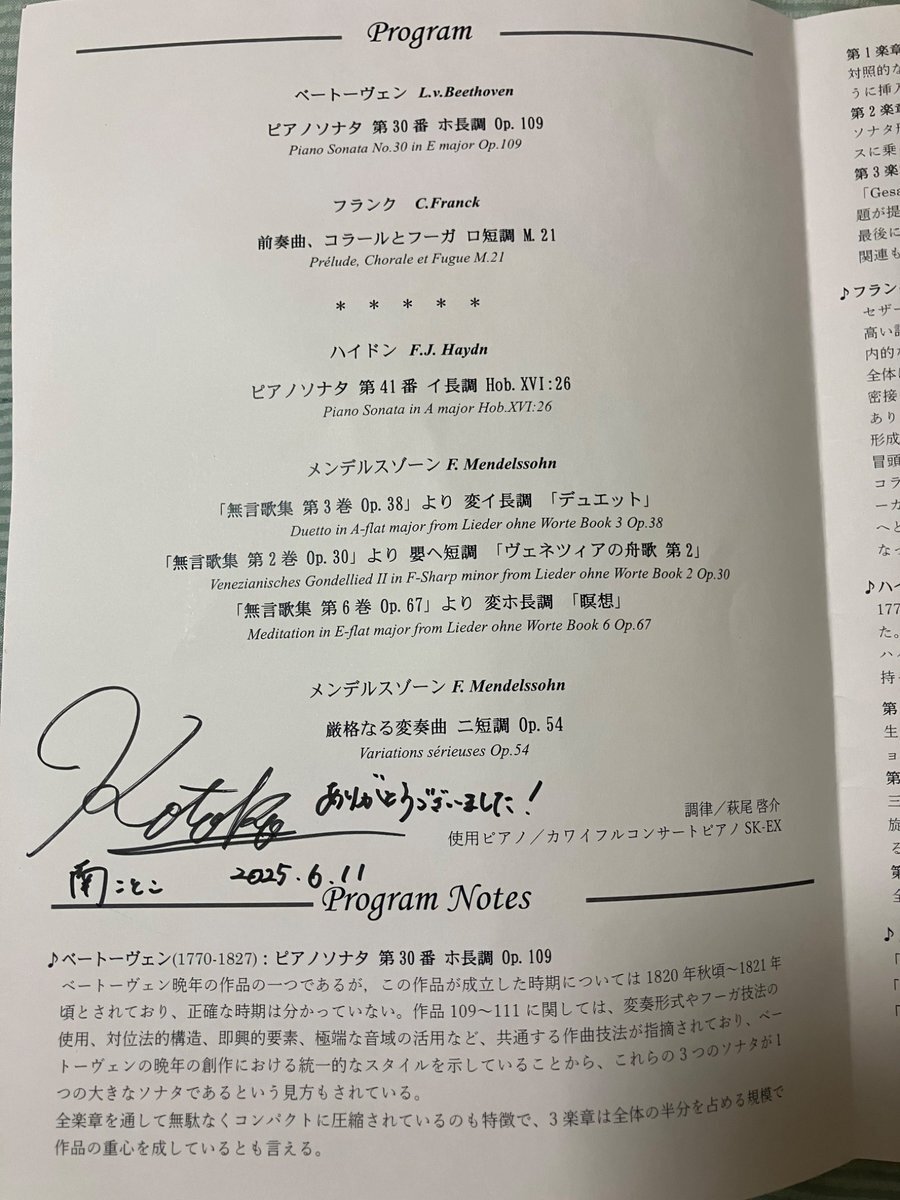 Program
ベートーヴェン L.v.Beethoven
ピアノソナタ 第30番 ホ長調 Op. 109
Piano Sonata No.30 in E major Op.109
フランク C.Franck
前奏曲、コラールとフーガ ロ短調 M. 21
Prélude, Chorale et Fugue M.21
* * * * *
ハイドン F.J. Haydn
ピアノソナタ 第41番 イ長調 Hob. XVI:26
Piano Sonata in A major Hob.XVI:26
メンデルスゾーン F. Mendelssohn
「無言歌集 第3巻 Op. 38」より 変イ長調 「デュエット」
Duetto in A-flat major from Lieder ohne Worte Book 3 Op.38
「無言歌集 第2巻 Op. 30」より 嬰ヘ短調 「ヴェネツィアの舟歌 第2」
Venezianisches Gondellied II in F-Sharp minor from Lieder ohne Worte Book 2 Op.30
「無言歌集 第6巻 Op. 67」より 変ホ長調 「瞑想」
Meditation in E-flat major from Lieder ohne Worte Book 6 Op.67
メンデルスゾーン F. Mendelssohn
厳格なる変奏曲 ニ短調 Op. 54
Variations sérieuses Op.54
Kotoko ありがとうございました!
調律／萩尾 啓介
使用ピアノ／カワイフルコンサートピアノ SK-EX
南ことこ 2025.6.11
Program Notes
♪ベートーヴェン(1770-1827)：ピアノソナタ 第30番 ホ長調 Op. 109
ベートーヴェン晩年の作品の一つであるが，この作品が成立した時期については1820年秋頃～1821年
頃とされており、正確な時期は分かっていない。作品109～111に関しては、変奏形式やフーガ技法の
使用、対位法的構造、即興的要素、極端な音域の活用など、共通する作曲技法が指摘されており、ベー
トーヴェンの晩年の創作における統一的なスタイルを示していることから、これらの3つのソナタが1
つの大きなソナタであるという見方もされている。
全楽章を通して無駄なくコンパクトに圧縮されているのも特徴で、3楽章は全体の半分を占める規模で
作品の重心を成しているとも言える。
第1楽章
対照的な
うに挿入
第2楽章
ソナタ形
スに乗
第3楽
「Gesa
題が提
最後に
関連も
♪フラン
セザー
高い評
内的な
全体に
密接
あり
形成
冒頭
コラ
ーガ
へと
なっ
♪ハイ
177
た。
ハイ
持
第
生
ョ
第
三
旋
る
第
全
♪
「
「
「